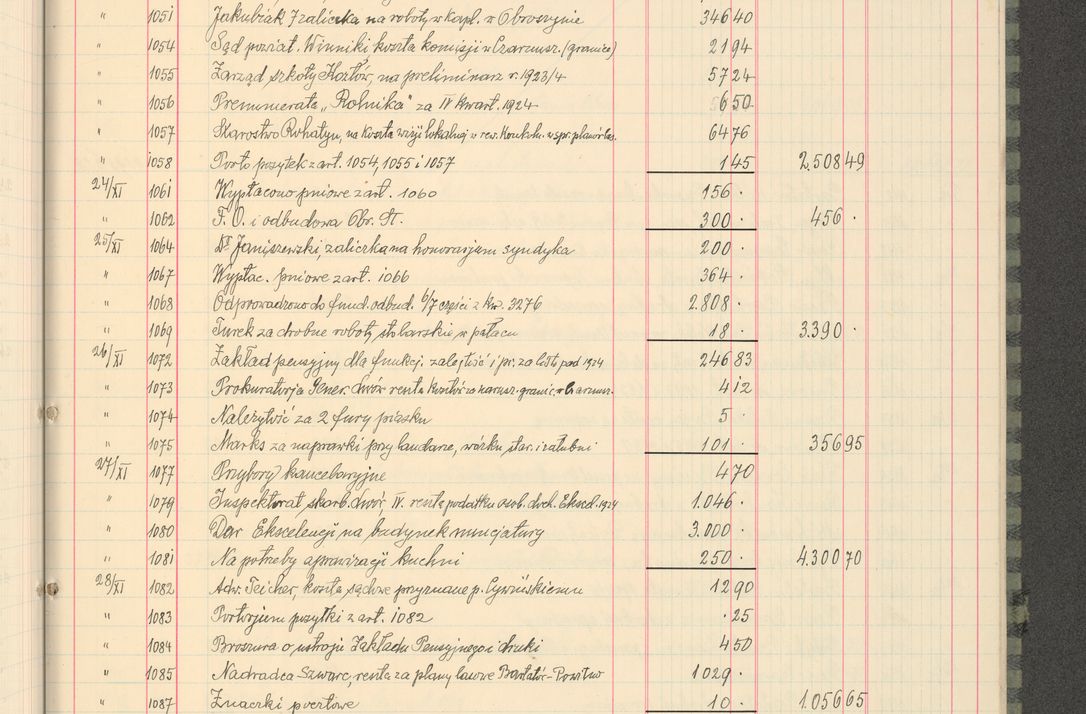 " 1051 Jakubiak zaliczka na roboty w kapl. w Obroszynie 346 40
" 1054 Sąd powiat. Winniki koszta komisji w Czarnusz. (granice) 21 94
" 1055 Zarząd szkoły Kozłów, na preliminarz r. 1923/4 57 24
" 1056 Prenumerata „Rolnika" za IV kwart. 1924 6 50
" 1057 Starostwo Rohatyn, na koszta wizji lokalnej w spr. planów las. 64 76
" 1058 Porto przytek z art. 1054, 1055 i 1057 1 45 2.508 49
24/XI 1061 Wypłacono pniowe z art. 1060 156 ·
" 1062 F. O. i odbudowa Obr. St. 300 · 456 ·
25/XI 1064 Dr Janiszewski, zaliczka na honorarjum syndyka 200 ·
" 1067 Wypłac. pniowe z art. 1066 364 ·
" 1068 Odprowadzono do fund. odbud. 6/7 części z kw. 3276 2.808 ·
" 1069 Turek za drobne roboty stolarskie w pałacu 18 · 3.390 ·
26/XI 1072 Zakład pensyjny dla funkcj. zaległość i pr. za listopad 1924 246 83
" 1073 Prokuratorja Gener. dwór renta kosztów granic. 4 12
" 1074 Należytość za 2 fury piasku 5 ·
" 1075 Marks za naprawki przy landarze, wózku star. i załubni 101 · 356 95
27/XI 1077 Przybory kancelaryjne 4 70
" 1079 Inspektorat skarb. Lwów, IV. renta podatku osob. doch. Ekscel. 1924 1.046 ·
" 1080 Dar Ekscelencji na budynek nuncjatury 3.000 ·
" 1081 Na potrzeby aprowizacji kuchni 250 · 4.300 70
28/XI 1082 Adw. Teicher, koszta sądowe przyznane p. Cywińskiemu 12 90
" 1083 Portorjum przytki z art. 1082 · 25
" 1084 Broszura o ustroju Zakładu Pensyjnego i druki 4 50
" 1085 Nadradca Szwarc, renta za plany lasowe Bartatów-Powitno 1029 ·
" 1087 Znaczki pocztowe 10 · 1.056 65